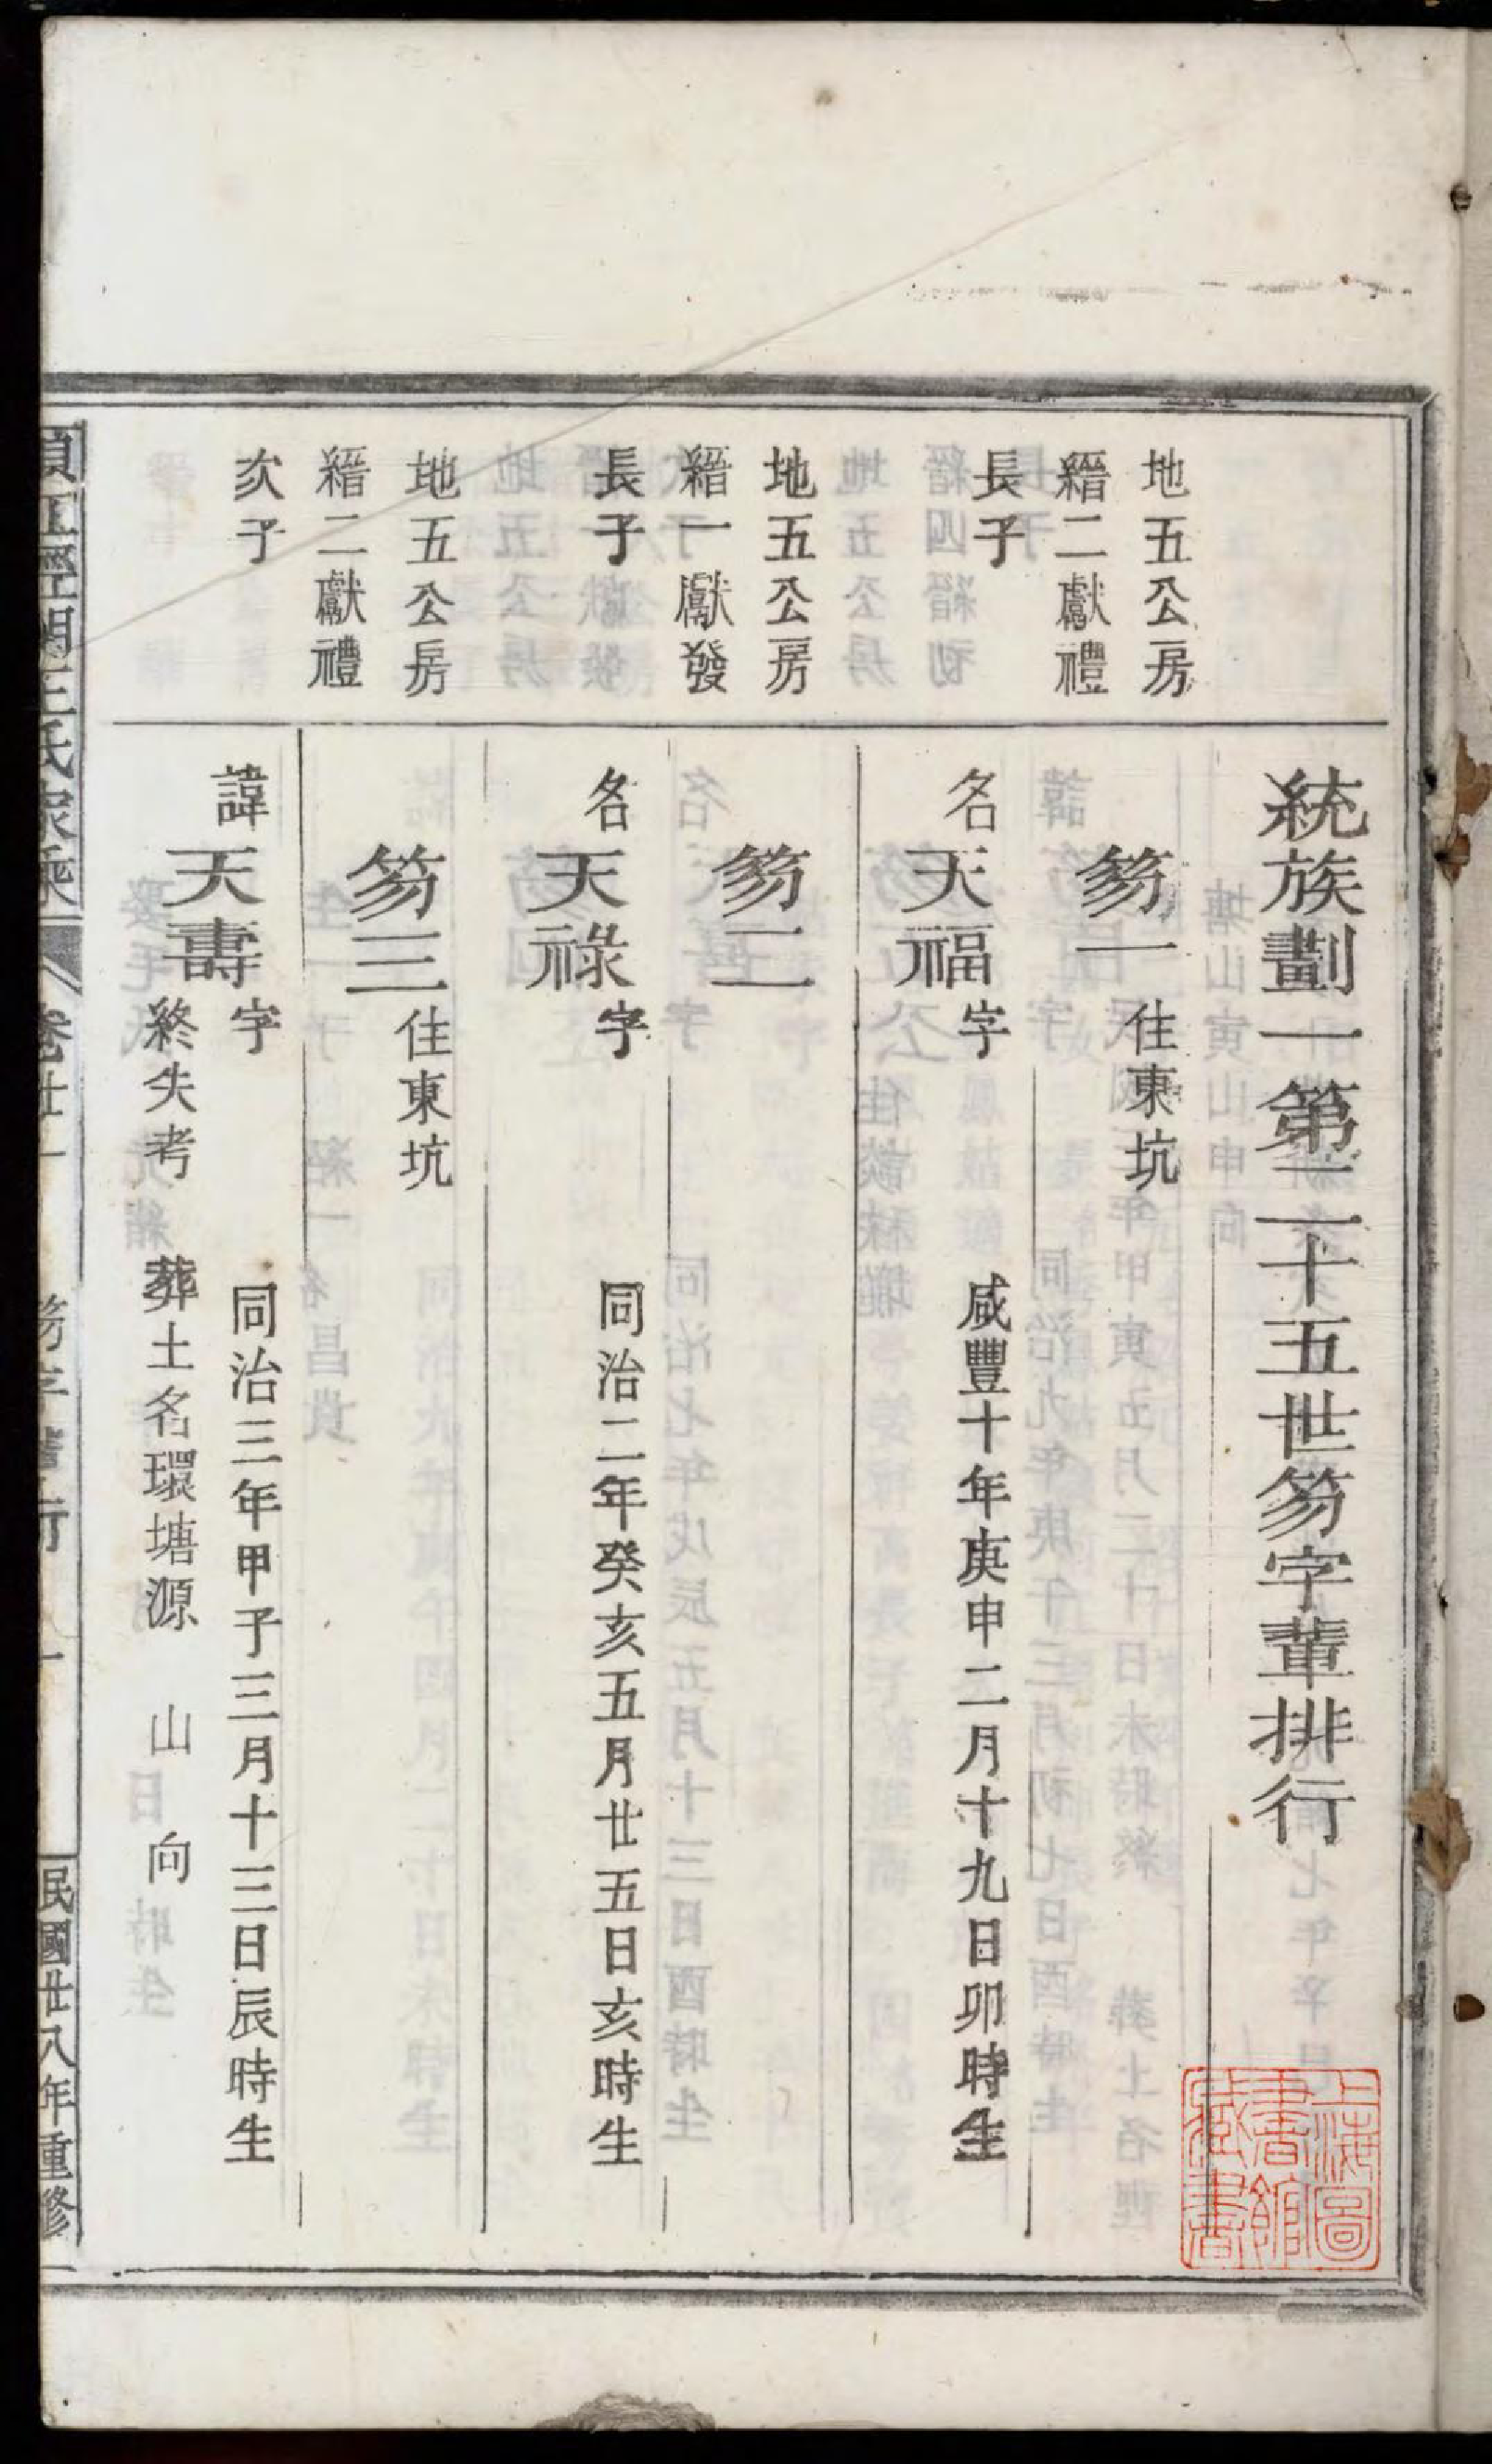 統族劃一第二十五世笏字輩排行
地五公房
縉二獻禮
長子
笏一 住東坑
名天福字 咸豐十年庚申二月十九日卯時生
地五公房
縉一獻發
長子
笏二
名天祿字 同治二年癸亥五月廿五日亥時生
地五公房
縉二獻禮
次子
笏三 住東坑
諱天壽字 同治三年甲子三月十三日辰時生
終失考 葬土名環塘源 山 向
王氏家乘 卷廿一 笏字輩行 一 民國廿八年重修
上海圖書館藏書